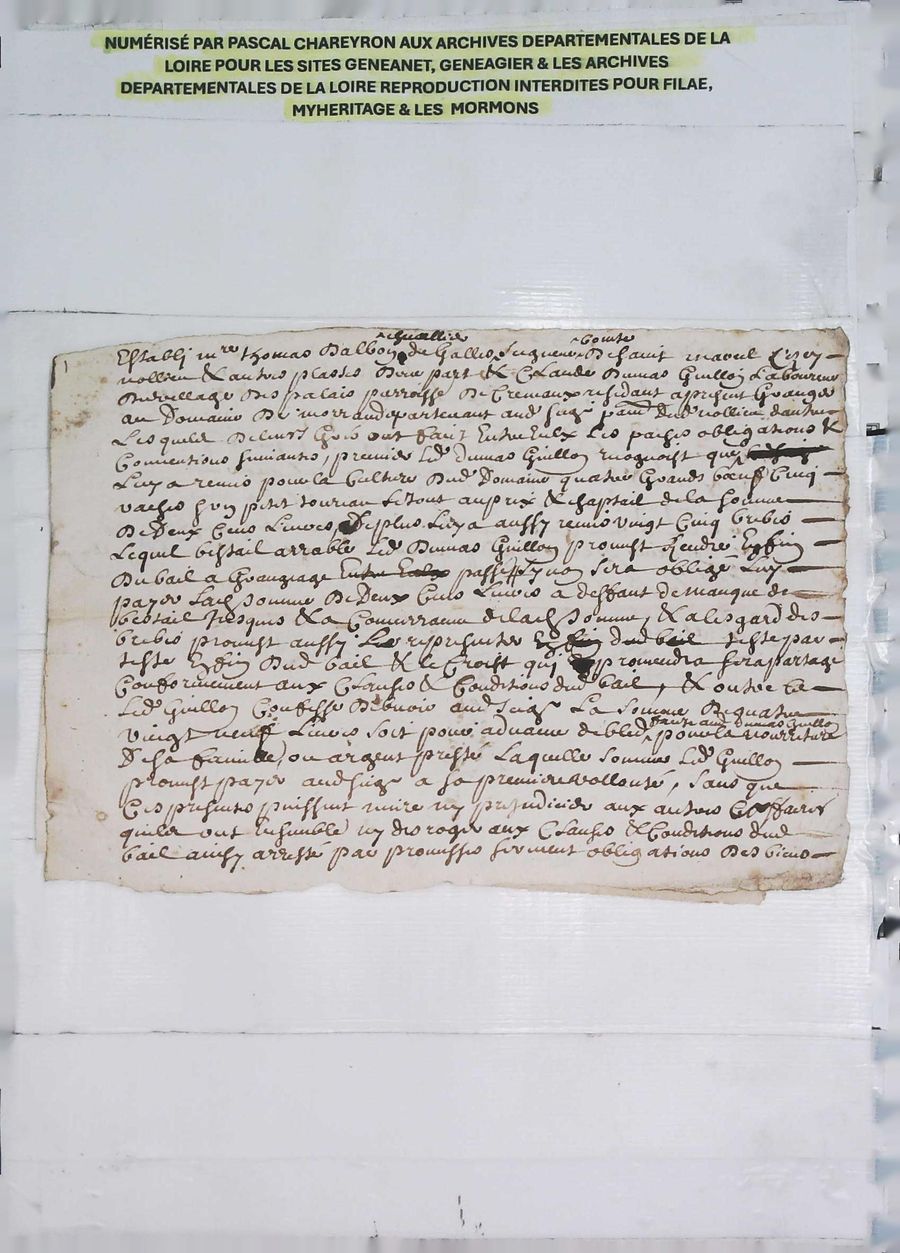 NUMÉRISÉ PAR PASCAL CHAREYRON AUX ARCHIVES DEPARTEMENTALES DE LA
LOIRE POUR LES SITES GENEANET, GENEAGIER & LES ARCHIVES
DEPARTEMENTALES DE LA LOIRE REPRODUCTION INTERDITES POUR FILAE,
MYHERITAGE & LES MORMONS
chevallier comte
Establj mre thomas Dalbon de Gallis seigneur De sainct marcel
nollieu & autres plasses Dune part & Claude Dumas Guillon Laboureur
Du village Des palais parroisse De Cremaux residant a present Granger
au Domaine De morrand apartenant aud seigr De nollieu dautre
Lesquels De leurs Gres ont fait Entre Eulx les paches obligations &
Conventions suivantes, premier led dumas Guillon recognoist que
Luy a remis pour la Culture Dud Domaine quatre Grands bœufs Cinq
vaches hun petit toureau Le tout au prix & chaptail de la somme
De Deux Cens Livres De plus Luy a aussy remis vingt Cinq brebis
Lequel bestail arrable Led Dumas Guillon promest Rendre Enfin
Du bail a Grangeage Entre Eulx passé sera obligé Luy
payer lad somme De Deux Cens Livres a deffaut de manque de
bestail Jusques a la Concurrance de lad somme, & a lesgard des
brebis promest aussy Les representer En fin dud bail teste par
teste En fin Dud bail & le Croist quj En proviendra sera partagé
Conformement aux Clauses & Conditions dud bail, & outre ce
Led Guillon Confesse Debvoir aud seigr La somme De quatre
vingt neuf Livres soit pour advance de bled faite aud Dumas Guillon pour la nourriture
De sa famille, ou argent presté Laquelle somme Led Guillon
promest payer aud seigr a sa premiere vollonté, sans que
Ces presentes puissent nuire ny prejudicier aux autres affaires
quils ont Ensemble ny desroger aux Clauses & Conditions dud
bail ainsy arresté par promesses serment obligations Des biens